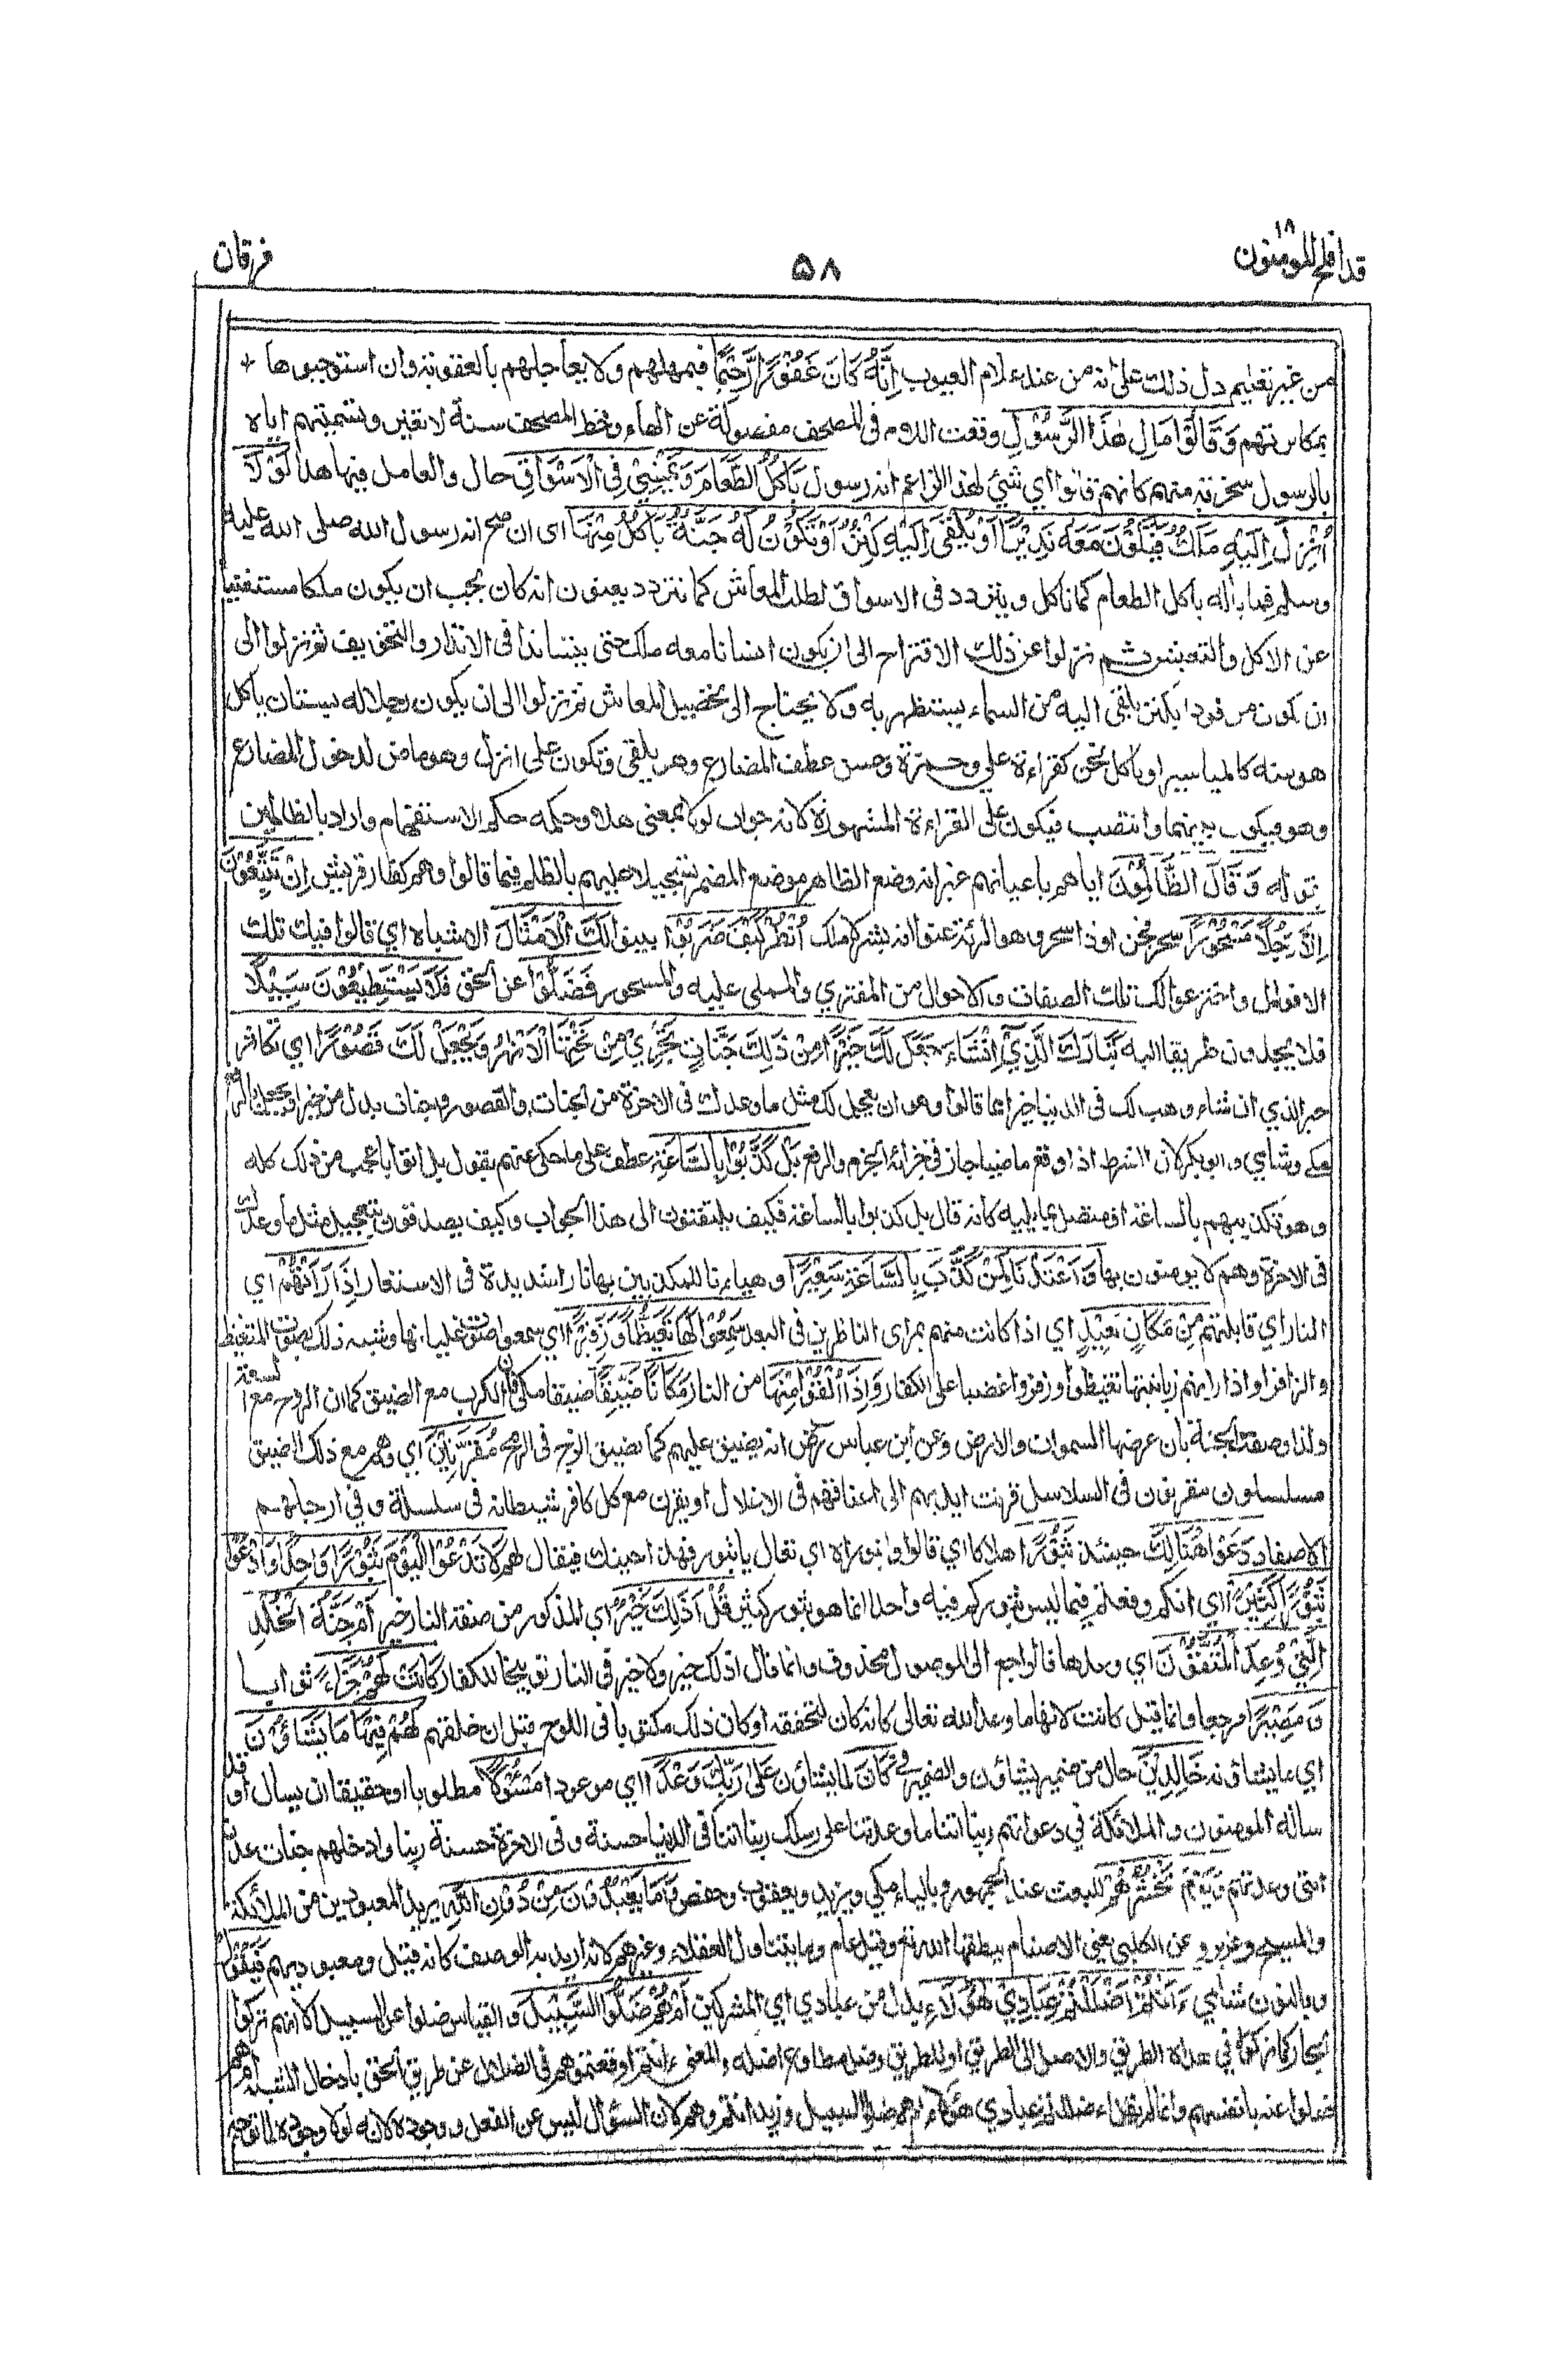 قد افلح المؤمنون ١٨
٥٨
فرقان
من غير تعليم دل ذلك على انه من عند علام الغيوب اِنَّهٗ كَانَ غَفُوْرًا رَّحِيْمًا فيمهلهم ولا يعاجلهم بالعقوبة وان استوجبوها
بمكابرتهم وَقَالُوْا مَالِ هٰذَا الرَّسُوْلِ وقعت اللام فى المصحف مفصولة عن الهاء وخط المصحف سنة لا تغير وتسميتهم اياه
بالرسول سخرية منهم كانهم قالوا اي شئ لهذا الزاعم انه رسول يَاْكُلُ الطَّعَامَ وَيَمْشِيْ فِى الْاَسْوَاقِ حال والعامل فيها هذا لَوْلَا
اُنْزِلَ اِلَيْهِ مَلَكٌ فَيَكُوْنَ مَعَهٗ نَذِيْرًا اَوْ يُلْقٰى اِلَيْهِ كَنْزٌ اَوْ تَكُوْنُ لَهٗ جَنَّةٌ يَّاْكُلُ مِنْهَا اى ان صح انه رسول الله صلى الله عليه
وسلم فما باله ياكل الطعام كما ناكل ويتردد فى الاسواق لطلب المعاش كما نتردد يعنون انه كان يجب ان يكون ملكا مستغنيا
عن الاكل والتعيش ثم نزلوا عن ذلك الاقتراح الى ان يكون انسانا معه ملك حتى يتساندا فى الانذار والتخويف ثم نزلوا الى
ان يكون مرفودا بكنز يلقى اليه من السماء يستظهر به ولا يحتاج الى تحصيل المعاش ثم نزلوا الى ان يكون رجلا له بستان ياكل
هو منه كالمياسير او ناكل نحن كقراءة علي وحمزة وحسن عطف المضارع وهو يلقى وتكون على انزل وهو ماض لدخول المضارع
وهو فيكون بينهما وانتصب فيكون على القراءة المشهورة لانه جواب لولا بمعنى هلا وحكمه حكم الاستفهام واراد بالظالمين
بقوله وَقَالَ الظّٰلِمُوْنَ اياهم باعيانهم غير انه وضع الظاهر موضع المضمر تسجيلا عليهم بالظلم فيما قالوا وهم كفار قريش اِنْ تَتَّبِعُوْنَ
اِلَّا رَجُلًا مَّسْحُوْرًا سحر فجن او ذا سحر وهو الرئة عنوا انه بشر لا ملك اُنْظُرْ كَيْفَ ضَرَبُوْا بينوا لَكَ الْاَمْثَالَ الاشباه اي قالوا فيك تلك
الاقوال واخترعوا لك تلك الصفات والاحوال من المفتري والمملى عليه والمسحور فَضَلُّوْا عن الحق فَلَا يَسْتَطِيْعُوْنَ سَبِيْلًا
فلا يجدون طريقا اليه تَبٰرَكَ الَّذِيْٓ اِنْ شَآءَ جَعَلَ لَكَ خَيْرًا مِّنْ ذٰلِكَ جَنّٰتٍ تَجْرِيْ مِنْ تَحْتِهَا الْاَنْهٰرُ وَيَجْعَلْ لَّكَ قُصُوْرًا اي تكاثر
خير الذي ان شاء وهب لك فى الدنيا خيرا مما قالوا وهو ان يجعل لك مثل ما وعدك فى الاخرة من الجنات والقصور وجنات بدل من خيرا ويجعل بالرفع
مكي وشامي وابو بكر لان الشرط اذا وقع ماضيا جاز فى جزائه الجزم والرفع بَلْ كَذَّبُوْا بِالسَّاعَةِ عطف على ما حكى عنهم يقول بل اتوا باعجب من ذلك كله
وهو تكذيبهم بالساعة او متصل بما يليه كانه قال بل كذبوا بالساعة فكيف يلتفتون الى هذا الجواب وكيف يصدقون بتعجيل مثل ما وعدك
فى الاخرة وهم لا يومنون بها وَاَعْتَدْنَا لِمَنْ كَذَّبَ بِالسَّاعَةِ سَعِيْرًا وهيانا للمكذبين بها نارا شديدة فى الاستعار اِذَا رَاَتْهُمْ اي
النار اي قابلتهم مِنْ مَّكَانٍ بَعِيْدٍ اي اذا كانت منهم بمراى الناظرين فى البعد سَمِعُوْا لَهَا تَغَيُّظًا وَّزَفِيْرًا اي سمعوا صوت غليانها وشبه ذلك بصوت المتغيظ
والزافر او اذا راتهم زبانيتها تغيظوا وزفروا غضبا على الكفار وَاِذَآ اُلْقُوْا مِنْهَا من النار مَكَانًا ضَيِّقًا ضيقا مكي فان الكرب مع الضيق كما ان الروح مع السعة
ولذا وصفت الجنة بان عرضها السموات والارض وعن ابن عباس رض انه يضيق عليهم كما يضيق الزج فى الرمح مُقَرَّنِيْنَ اي وهم مع ذلك الضيق
مسلسلون مقرنون فى السلاسل قرنت ايديهم الى اعناقهم فى الاغلال او يقرن مع كل كافر شيطانه فى سلسلة وفي ارجلهم
الاصفاد دَعَوْا هُنَالِكَ حينئذ ثُبُوْرًا هلاكا اي قالوا واثبوراه اي تعال يا ثبور فهذا حينك فيقال لهم لَا تَدْعُوا الْيَوْمَ ثُبُوْرًا وَّاحِدًا وَّادْعُوْا
ثُبُوْرًا كَثِيْرًا اي انكم وقعتم فيما ليس ثبوركم فيه واحدا انما هو ثبور كثير قُلْ اَذٰلِكَ خَيْرٌ اي المذكور من صفة النار خير اَمْ جَنَّةُ الْخُلْدِ
الَّتِيْ وُعِدَ الْمُتَّقُوْنَ اي وعدها فالراجع الى الموصول محذوف وانما قال اذلك خير ولا خير فى النار توبيخا للكفار كَانَتْ لَهُمْ جَزَآءً ثوابا
وَّمَصِيْرًا مرجعا وانما قيل كانت لانها ما وعد الله تعالى كانه كان لتحققه او كان ذلك مكتوبا فى اللوح قبل ان خلقهم لَهُمْ فِيْهَا مَا يَشَآءُوْنَ
اي ما يشاؤنه خٰلِدِيْنَ حال من ضمير يشاؤن والضمير فى كَانَ لما يشاؤن عَلٰى رَبِّكَ وَعْدًا اي موعودا مَّسْئُوْلًا مطلوبا او حقيقا ان يسال او قد
ساله المومنون والملائكة في دعواتهم ربنا اتنا ما وعدتنا على رسلك ربنا اتنا فى الدنيا حسنة وفى الاخرة حسنة ربنا وادخلهم جنات عدن
التى وعدتهم وَيَوْمَ نَحْشُرُهُمْ للبعث عند الجمهور وبالياء مكي ويزيد ويعقوب وحفص وَمَا يَعْبُدُوْنَ مِنْ دُوْنِ اللّٰهِ يريد المعبودين من الملائكة
والمسيح وعزير وعن الكلبي يعني الاصنام ينطقها الله تع وقيل عام وما يتناول العقلاء وغيرهم لانه اريد به الوصف كانه قيل ومعبوديهم فَيَقُوْلُ
وبالنون شامي ءَاَنْتُمْ اَضْلَلْتُمْ عِبَادِيْ هٰٓؤُلَآءِ بدل من عبادي اي المشركين اَمْ هُمْ ضَلُّوا السَّبِيْلَ والقياس ضلوا عن السبيل الا انهم تركوا
الجار كما تركوا في هداه الطريق والاصل الى الطريق او للطريق وضل مطاوع اضله والمعنى ءانتم اوقعتموهم فى الضلال عن طريق الحق بادخال الشبه ام هم
ضلوا عنه بانفسهم وانما لم يقل ءاضللتم عبادي هؤلاء ام ضلوا السبيل وزيد انتم وهم لان السؤال ليس عن الفعل ووجوده لانه لولا وجوده لما توجه